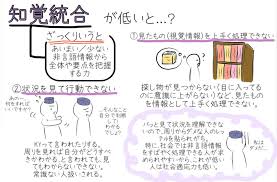 知覚統合が低いと…?
ざっくりいうと
あいまい/少ない
非言語情報から
全体や要点を把握
する力
①見たもの(視覚情報)を上手く処理できない
探し物が見つからない(目に入ってる
のに意識に上がらない)など、見たもの
を情報として上手く処理できない。
②状況を見て行動できない
あの…
何をすれば
いいですか?
そんなこと
自分で判断
してよ
KYって言われたりする。
周りを見れば自分がどうすべ
きかわかる、と言われても、見
てもわからないでできない。
常識ない人扱いされる。
パッと見て状況を理解できな
いので、周りからダメな人のレッ
テルを貼られがち。
特に、社会では非言語情報を
上手く処理できる人が求
められやすいから、これが低い
人は社会適応力も低い。